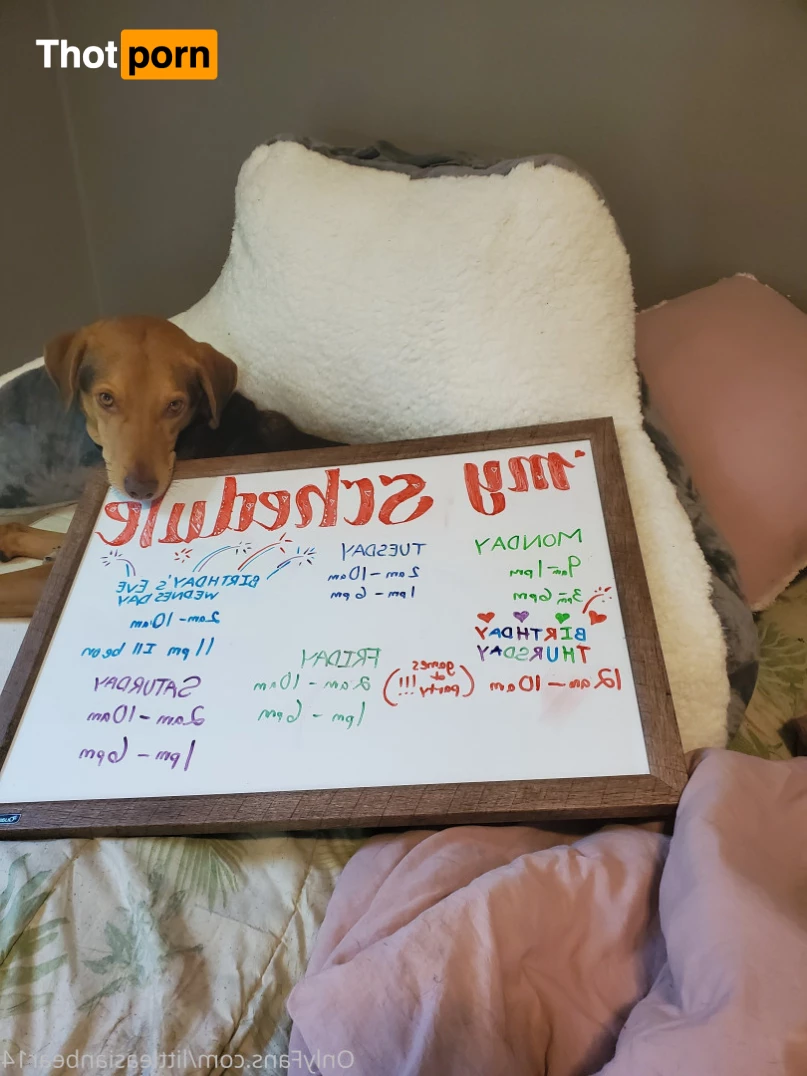 Thotporn
my Schedule
MONDAY
9am-1pm
3pm-6pm
TUESDAY
2am-10am
1pm-6pm
BIRTHDAY'S EVE
WEDNESDAY
2am-10am
11pm Ill be on
BIRTHDAY
THURSDAY
12am-10am
(games
at
party!!!)
FRIDAY
2am-10am
1pm-6pm
SATURDAY
2am-10am
1pm-6pm
OnlyFans.com/littleasianbear14